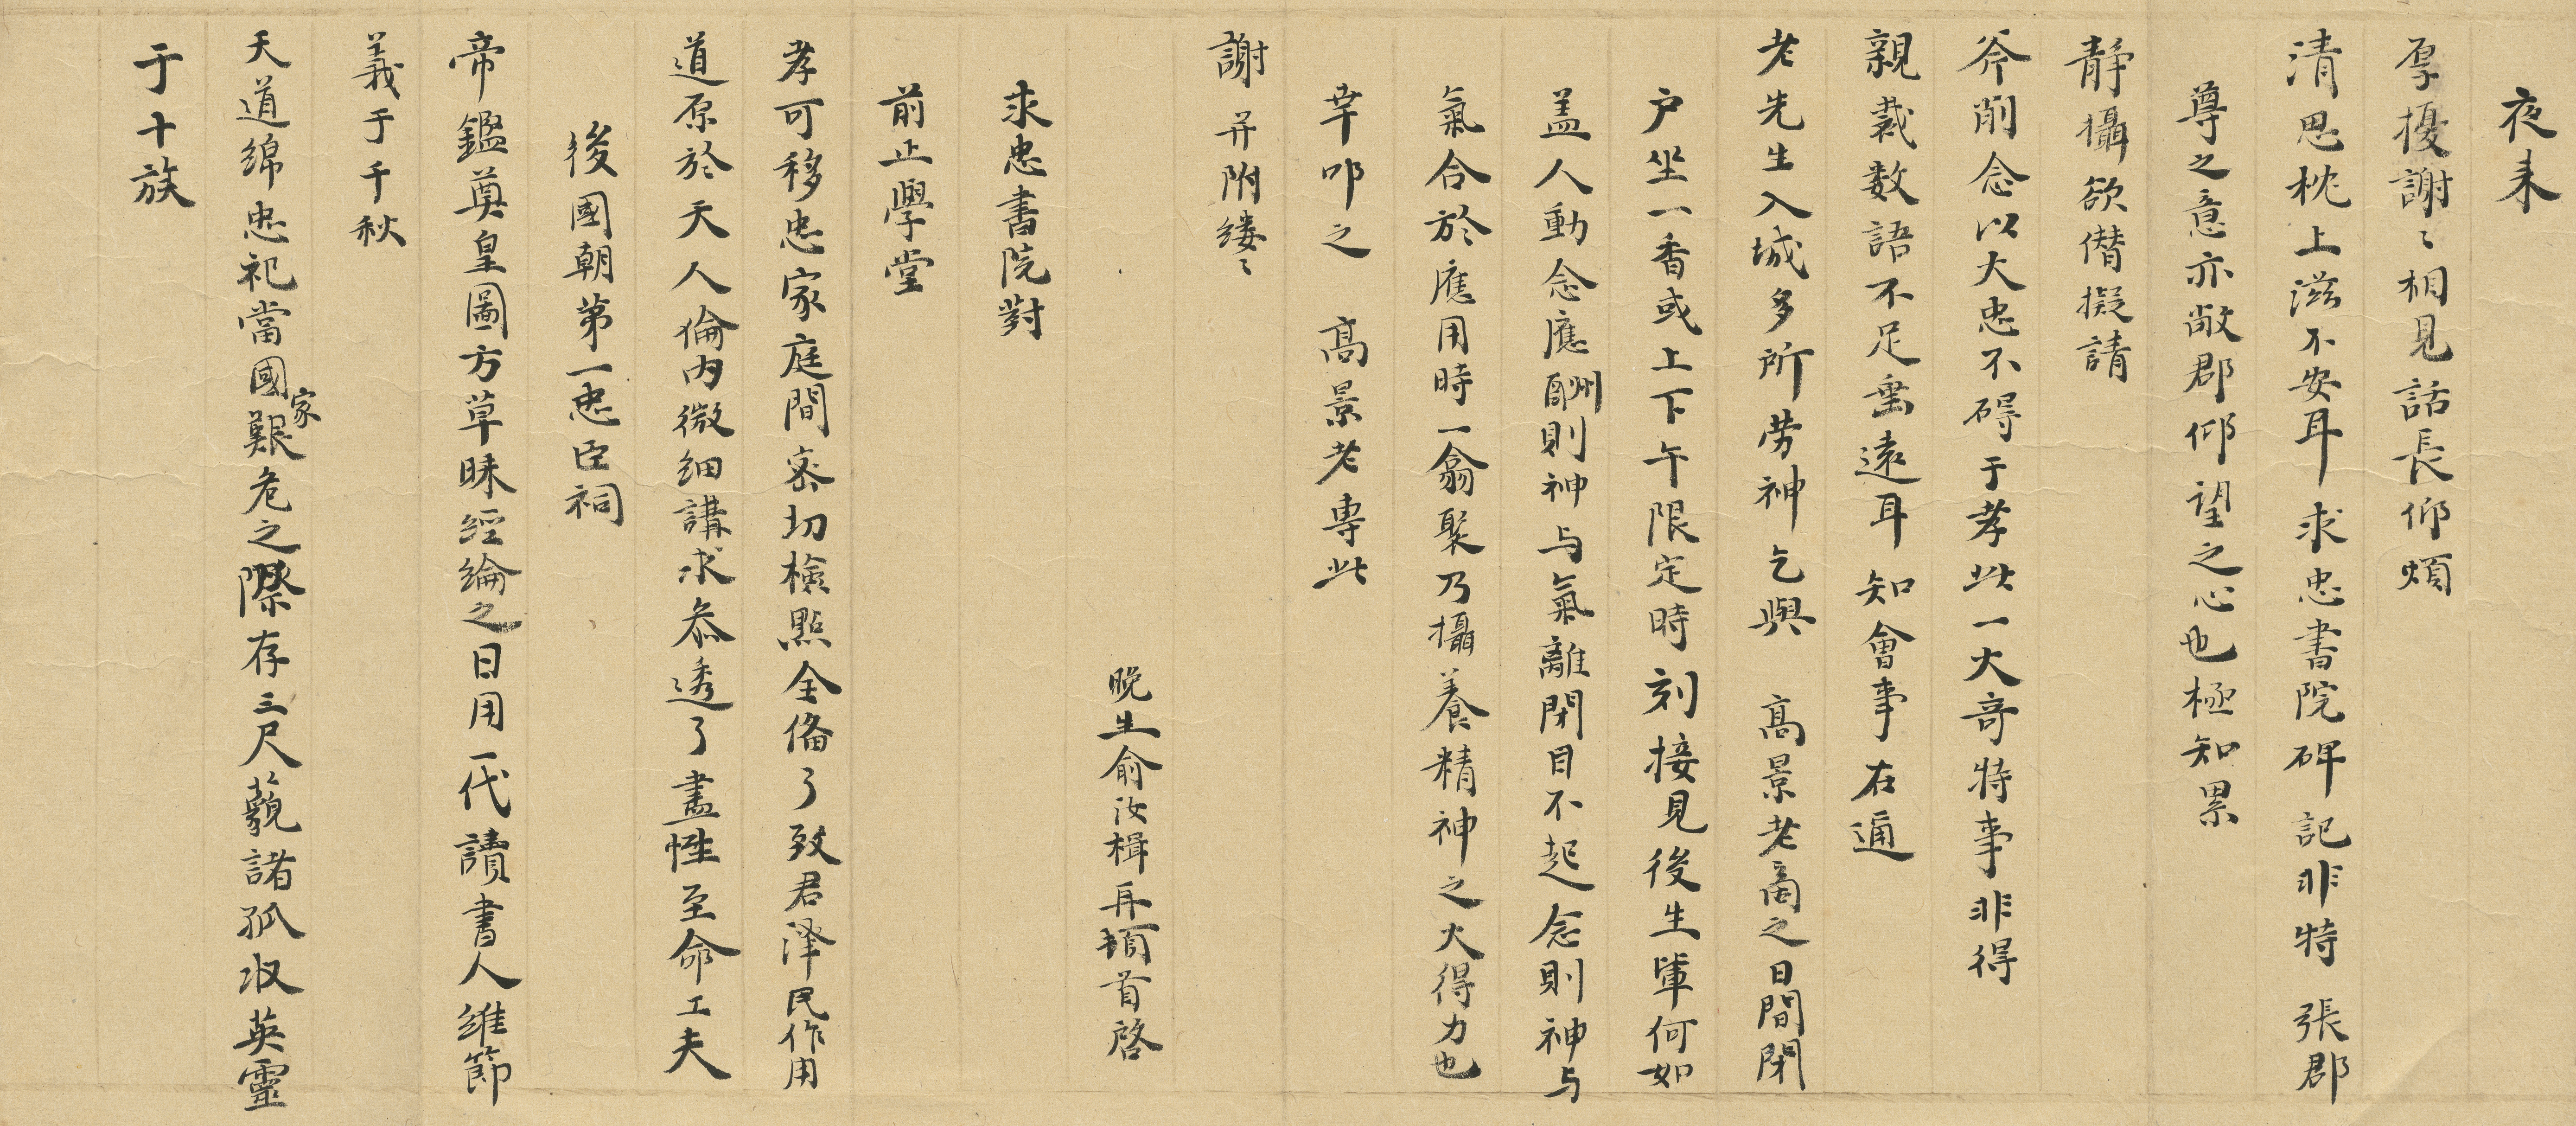 夜来
厚擾謝〻相見話長仰煩
清思枕上滋不安耳求忠書院碑記非特 張郡
尊之意亦敝郡仰望之心也極知累
静攝欲僣擬請
斧削念以大忠不碍于孝此一大奇特事非得
親裁数語不足垂遠耳知會事在通
老先生入城多所劳神乞與 髙景老啇之日間閉
户坐一香或上下午限定時刻接見後生軰何如
盖人動念應酬則神与氣離閉目不起念則神与
氣合於應用時一翕聚乃攝養精神之大得力也
幸叩之 髙景老專此
謝 并附缕〻
晚生俞汝楫再頓首啓
求忠書院對
前止學堂
孝可移忠家庭間宻切檢點全俻了致君泽民作用
道原於天人倫内微细講求叅透了盡性至命工夫
後國朝第一忠臣祠
帝鑑奠皇圖方草昧經綸之日用一代讀書人維節
義于千秋
天道綿忠祀當國家艱危之際存三尺藐諸孤收英靈
于十族